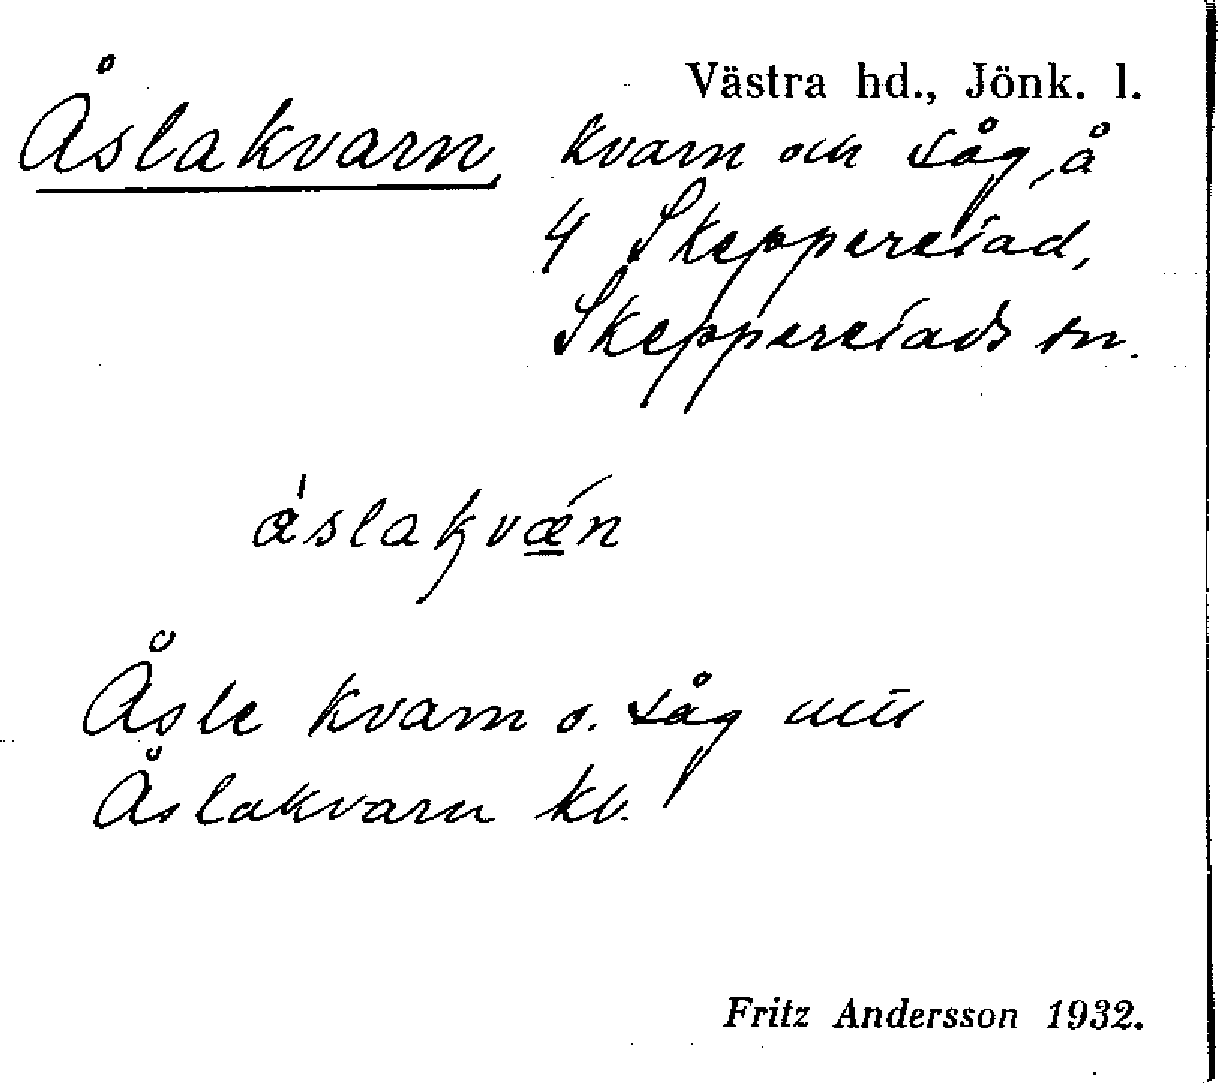 Västra hd., Jönk. l.
Åslakvarn, kvarn och såg, å
4 Skeppersta​d,
Skepperstads sn.
åslakvæn
Åsle kvarn o. såg
Åslakvarn kb.
Fritz Andersson 1932.